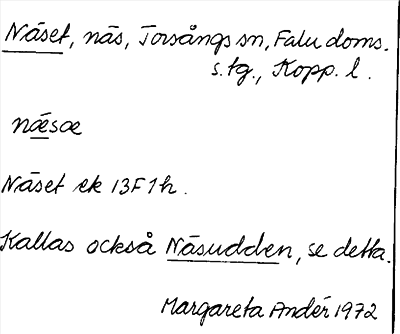 Näset, näs, Torsångs sn, Falu doms.
s.tg., Kopp. l.
næsæ
Näset ek 13F1h.
Kallas också Näsudden, se detta.
Margareta Andér 1972